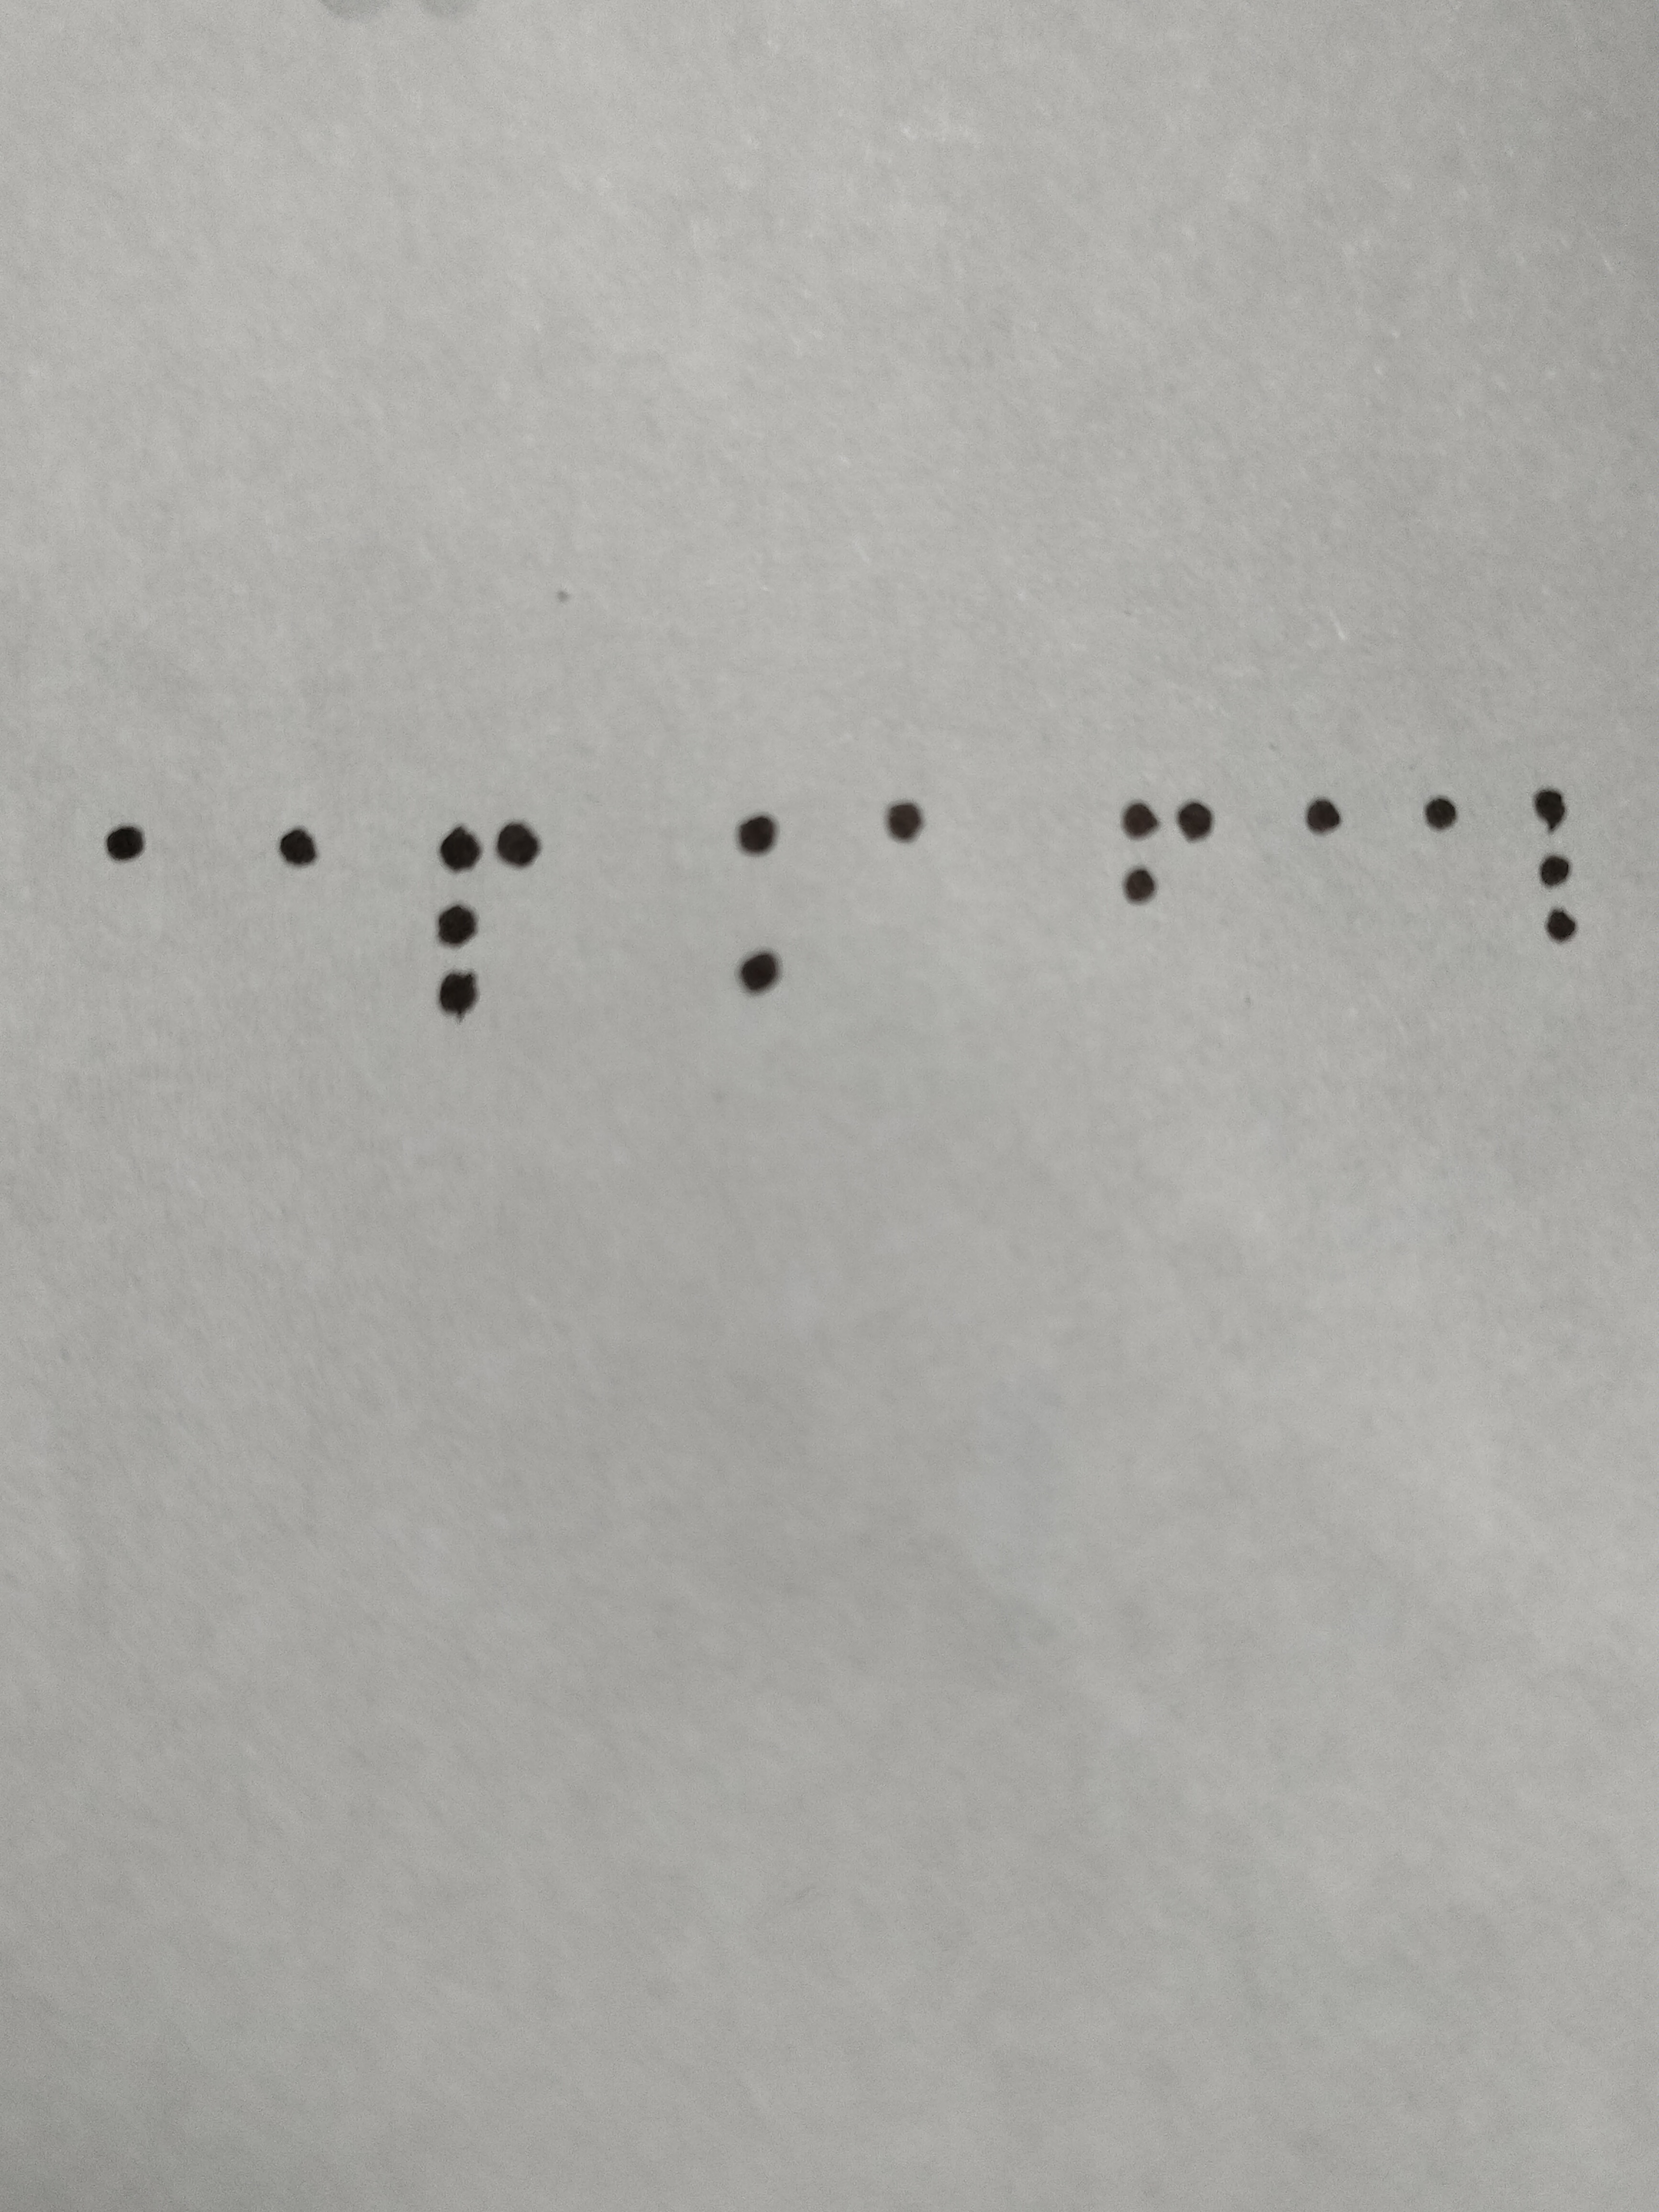 ⠁⠁⠏ ⠅⠁ ⠋⠁⠁⠇